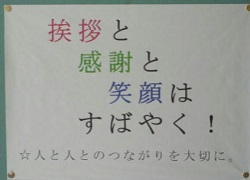 挨拶と
感謝と
笑顔は
すばやく！
☆人と人とのつながりを大切に。